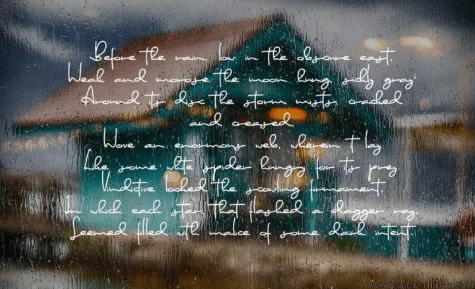 Before the rain, low in the obscure east,
Weak and morose the moon hung, sickly gray;
Around its disc the storm mists, cracked
and creased,
Wove an enormous web, wherein it lay
Like some white spider hungry for its prey.
Vindictive looked the scowling firmament,
In which each star, that flashed a dagger ray,
Seemed filled with malice of some dark intent.